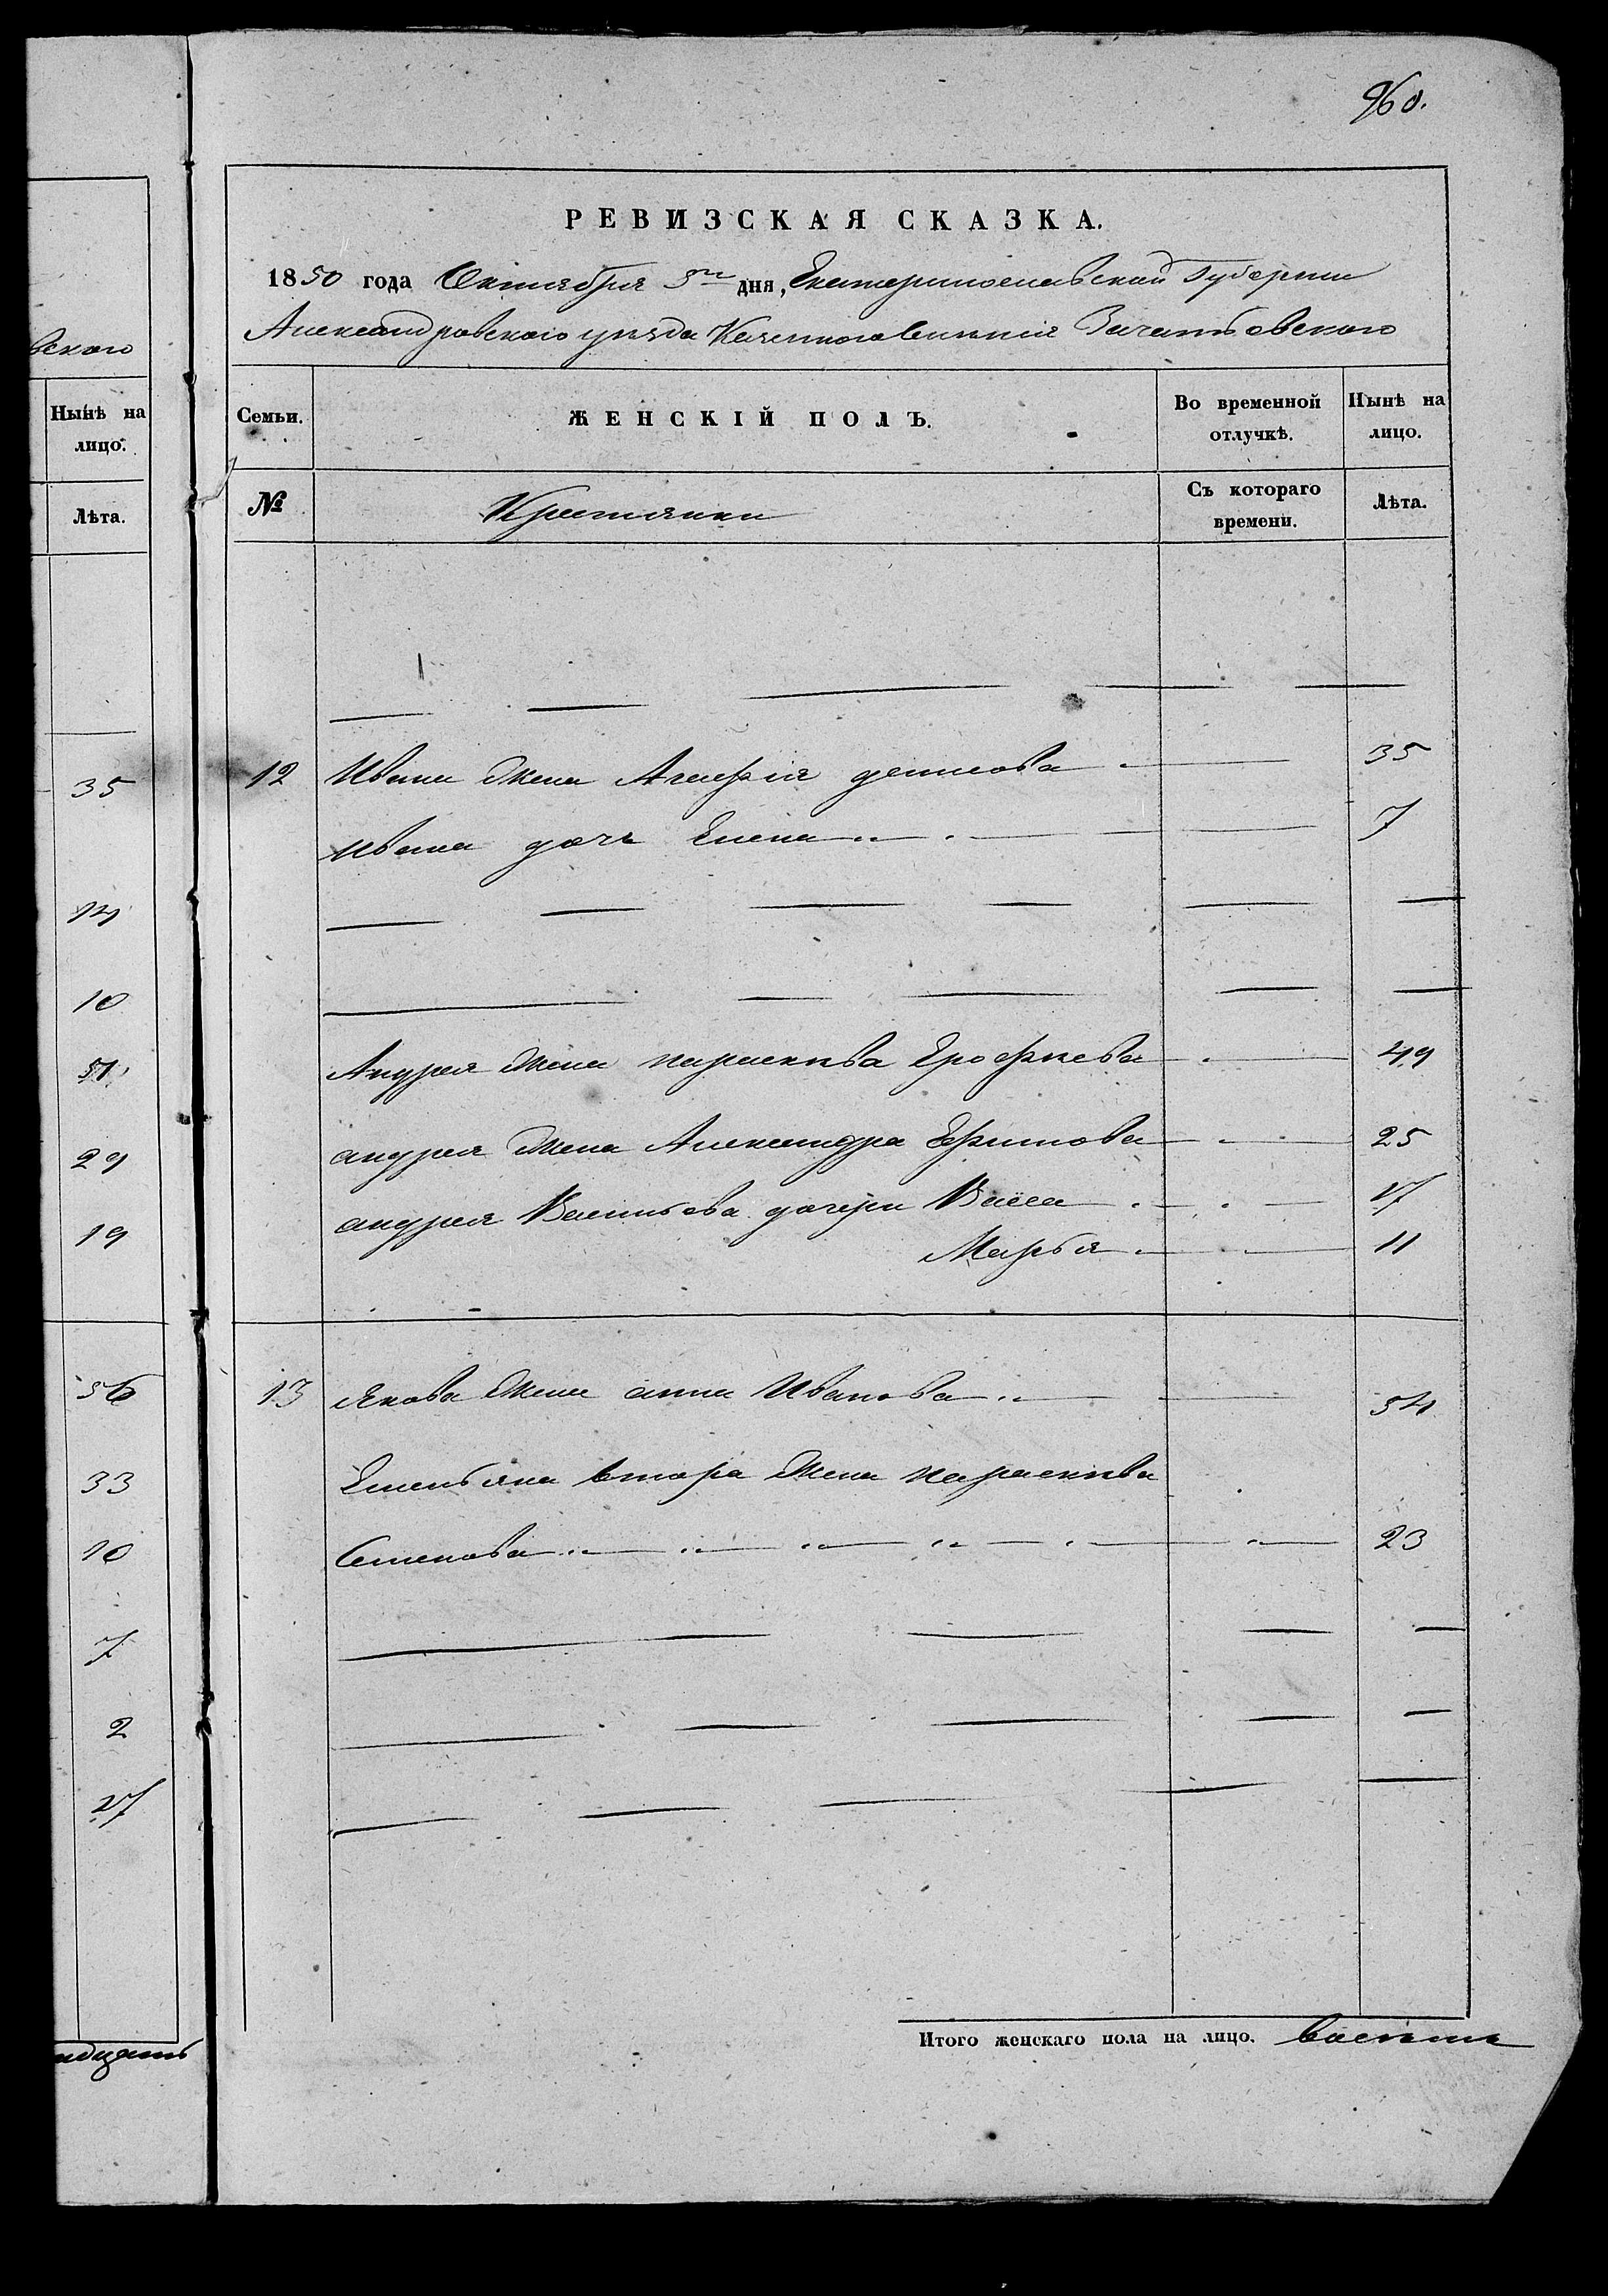 960.
РЕВИЗСКАЯ СКАЗКА.
1850 года Октября 5го дня, Екатеринославской Губернии
Александровского уезда Казенного Селения Зачатьевского
вского
Нынѣ на лицо.
Лѣта.
35
14
10
51
29
19
56
33
10
7
2
27
идцать
Семьи. ЖЕНСКІЙ ПОЛЪ. Во временной отлучкѣ. Нынѣ на лицо.
№ Крестянки Съ котораго времени. Лѣта.
12 Ивана жена Агафія денисова 35
Ивана дочь Елена 7
Андрея жена параскева Ерофѣева 49
андрея жена Александра Ефимова 25
андрея Васильева дочери Васса 17
Марья 11
13 Якова жена анна Иванова 54
Емельяна втора жена параскева
Семенова 23
Итого женскаго пола на лицо. восемь